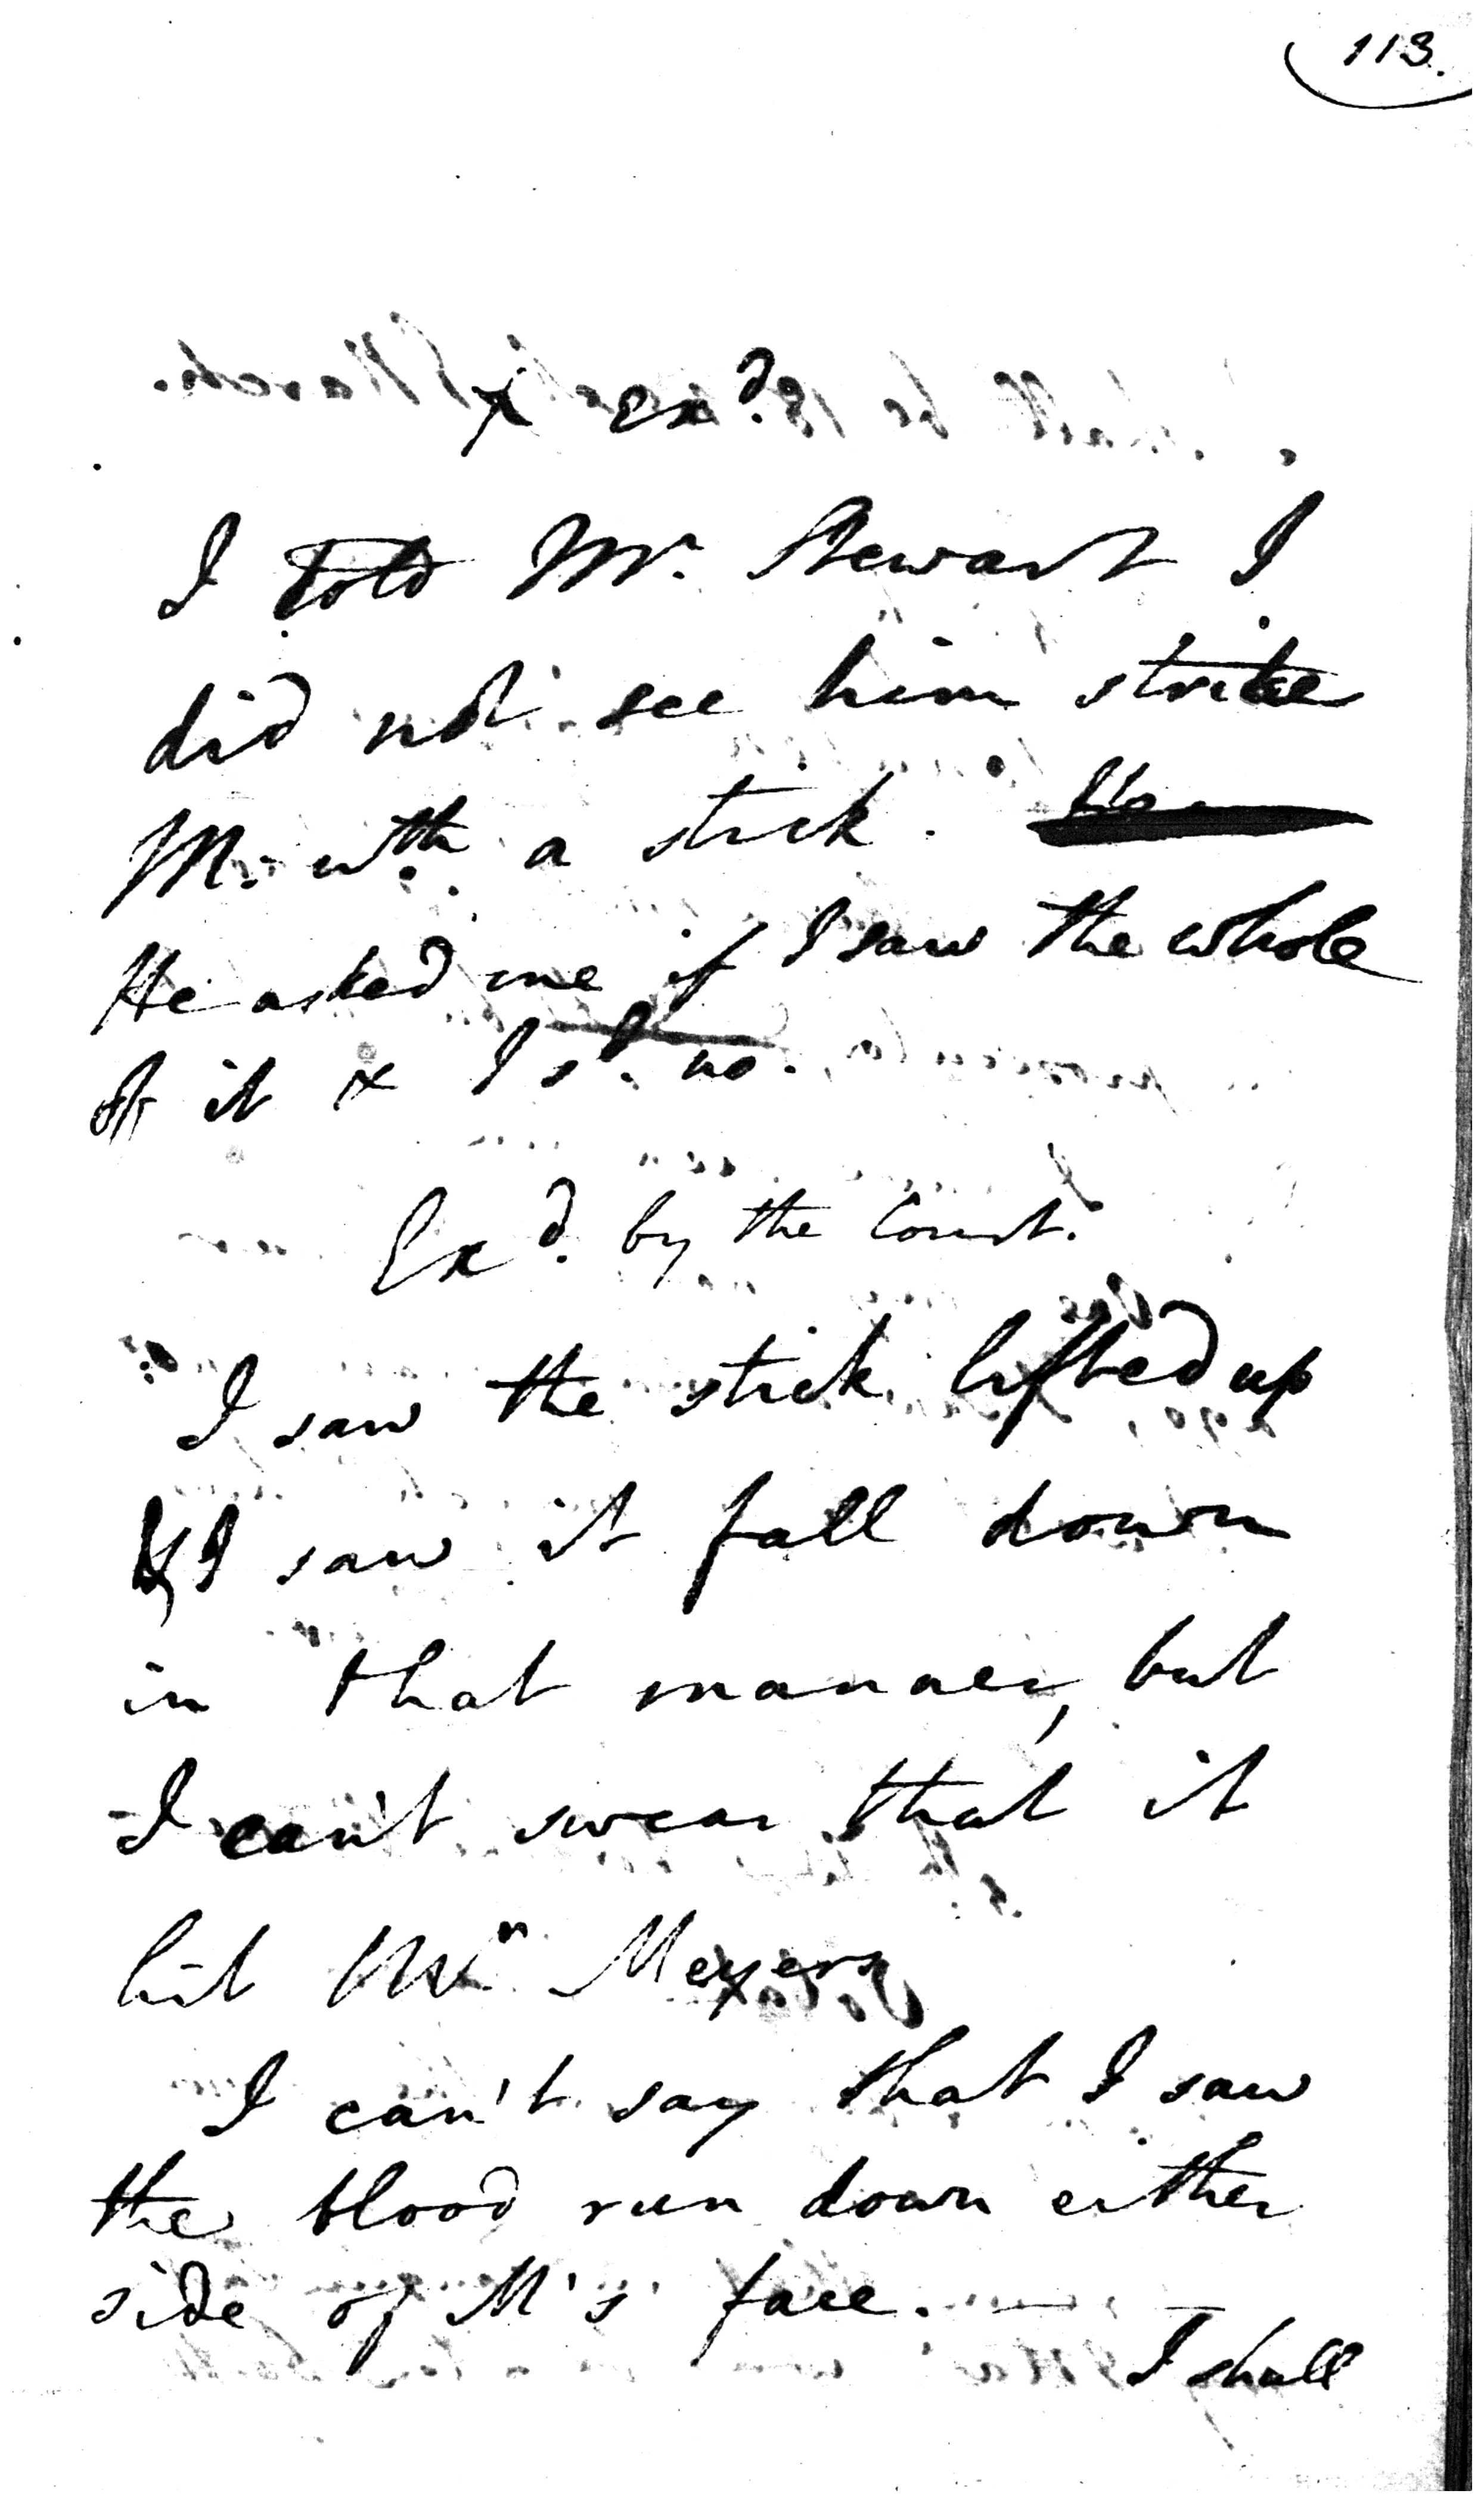 113.
X Exd.
I told Mr. Stewart I
did not see him strike
M. wth. a stick.
He asked me if I saw the whole
of it & I sd. no.
Exd. by the Court.
I saw the stick lifted up
& I saw it fall down
in that manner, but
I can't swear that it
hit Mr Meyer
I can't say that I saw
the blood run down either
side of M's face.
I shall